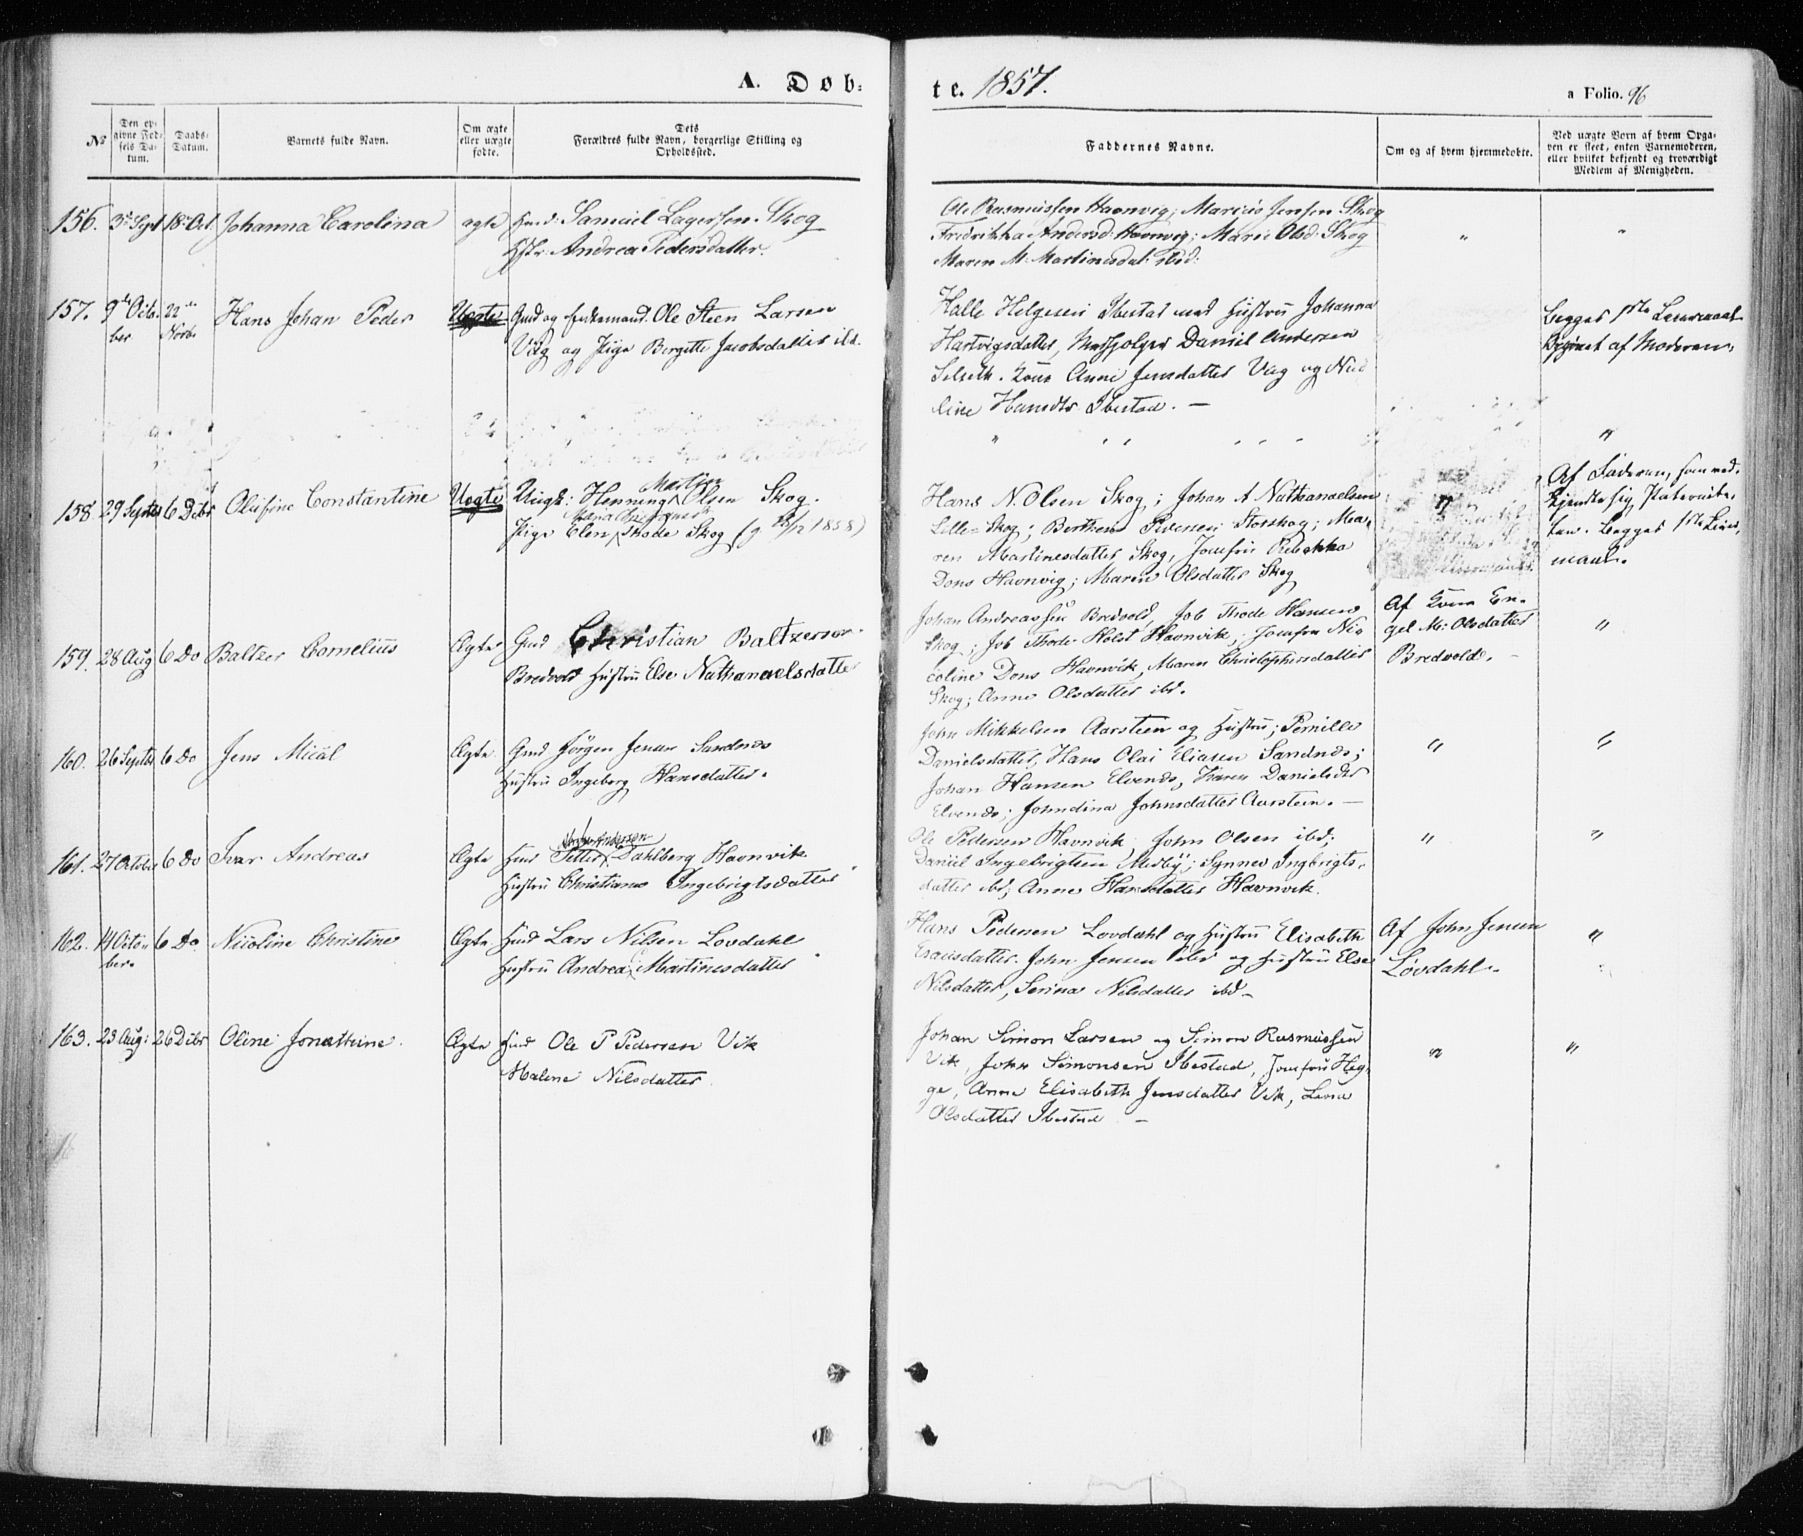 A. Døb:
te. 1857.
a Folio. 96
No
Den op-
givne Fød-
sels Da-
tum.
Daabs-
Datum.
Barnets fulde Navn.
Om ægte
eller uægte
fødte.
Dets
Forældres fulde Navn, borgerlige Stilling og
Opholdssted.
Faddernes Navne.
Om og af hvem hjemmedøbte.
Ved uægte Børn af hvem Opga-
ven er skeet, enten Barnemoderen,
eller hvilket bekjendt og troværdigt
Medlem af Menigheden.
156. 3de Sept 18 Oct. Johanna Carolina ægte Huusd: Samuel Lagesen Skog
Hstr. Andrea Pedersdatter.
Ole Rasmussen Havnvig; Marius Jensen Skog
Fredrikka Andersd: Havnvig; Marie Olsd: Skog
Maren M. Martinusdat. ibid:
157. 9de Octo-
ber
22de
Novbr
Hans Johan Peder Uægte Gmd og Enkemand Ole Steen Larsen
Viig og Pige Bergitte Jacobsdatter ibd.
Halle Helgesen Ibestad med Hustru Johanna
Hartvigsdatter, Daniel Andersen
Selseth. Kone Anne Jensdatter Viig og Nico-
line Hansdtr Ibestad. —
Begges 1ste Leiermaal
Opgivet af Moderen.
158 29 Septbr 6 Decbr Olufine Constantine Uægte Ungk: Henning Martin Olsen Skog.
Pige Elen Skode Skog (g. 1858)
Hans N. Olsen Skog; Johan A Nathanaelsen
Lille-Skog; Berthem Iversen Storskog; Ma-
ren Martinesdatter Skog, Jomfru Rebekka
Dons Havnvig; Maren Olsdatter Skog
Af Faderen, som ved-
kjendte sig Paternite-
ten. Begges 1ste Leier-
maal.
159. 28 Aug 6 Do Baltzer Cornelius Ægte Gmd Christian Baltzersen
Bredvold Hustru Else Nathanaelsdatter
Johan Andreassen Bredvold, Job Thode Hansen
Skog; Job Thode Holst Havnvik; Jomfru Nico
coline Dons Havnvik, Maren Christophersdatter
Skog; Anne Olsdatter ibd.
Af Kone En-
gel M: Olsdatter
Bredvold. —
160. 26 Septbr 6 Do Jens Micál Ægte Gmd Jørgen Jensen Sandnes
Hustru Ingeborg Hansdatter.
John Mikkelsen Aarsteen og Hustru; Pernille
Danielsdatter, Hans Olai Eliasen Sandnes;
Johan Hansen Elvenes, Karen Danielsdtr
Elvenes; Johndina Johnsdatter Aarsteen. —
161. 27 October 6 Do Ivar Andreas Ægte Huusd Petter Andersen Dahlberg Havnvik
Hustru Christiane Ingebrigtsdatter
Ole Pedersen Havnvik, John Olsen ibd;
Daniel Ingebrigtsen Medby; Synnev Ingbrigts-
datter ibd; Anne Hansdatter Havnvik.
162. 14 Octo-
ber.
6 Do. Nicoline Christine Ægte Huusd Lars Nilsen Løvdahl
Hustru Andrea Martinusdatter
Hans Pedersen Lovdahl og Hustru Elisabeth
Enausdatter. John Jensen ibd og Hustru Else
Nilsdatter, Serina Nilsdatter ibd —
Af John Jensen
Løvdahl.
163. 23 Aug: 26 Decbr Oline Jonettine. Ægte Huusd Ole P Pedersen Vik
Malene Nilsdatter.
Johan Simon Larsen og Simon Rasmussen
Vik, John Simonsen Ibestad, Jomfru Heg-
ge, Anne Elisabeth Jensdatter Vik, Lena
Olsdatter Ibestad —